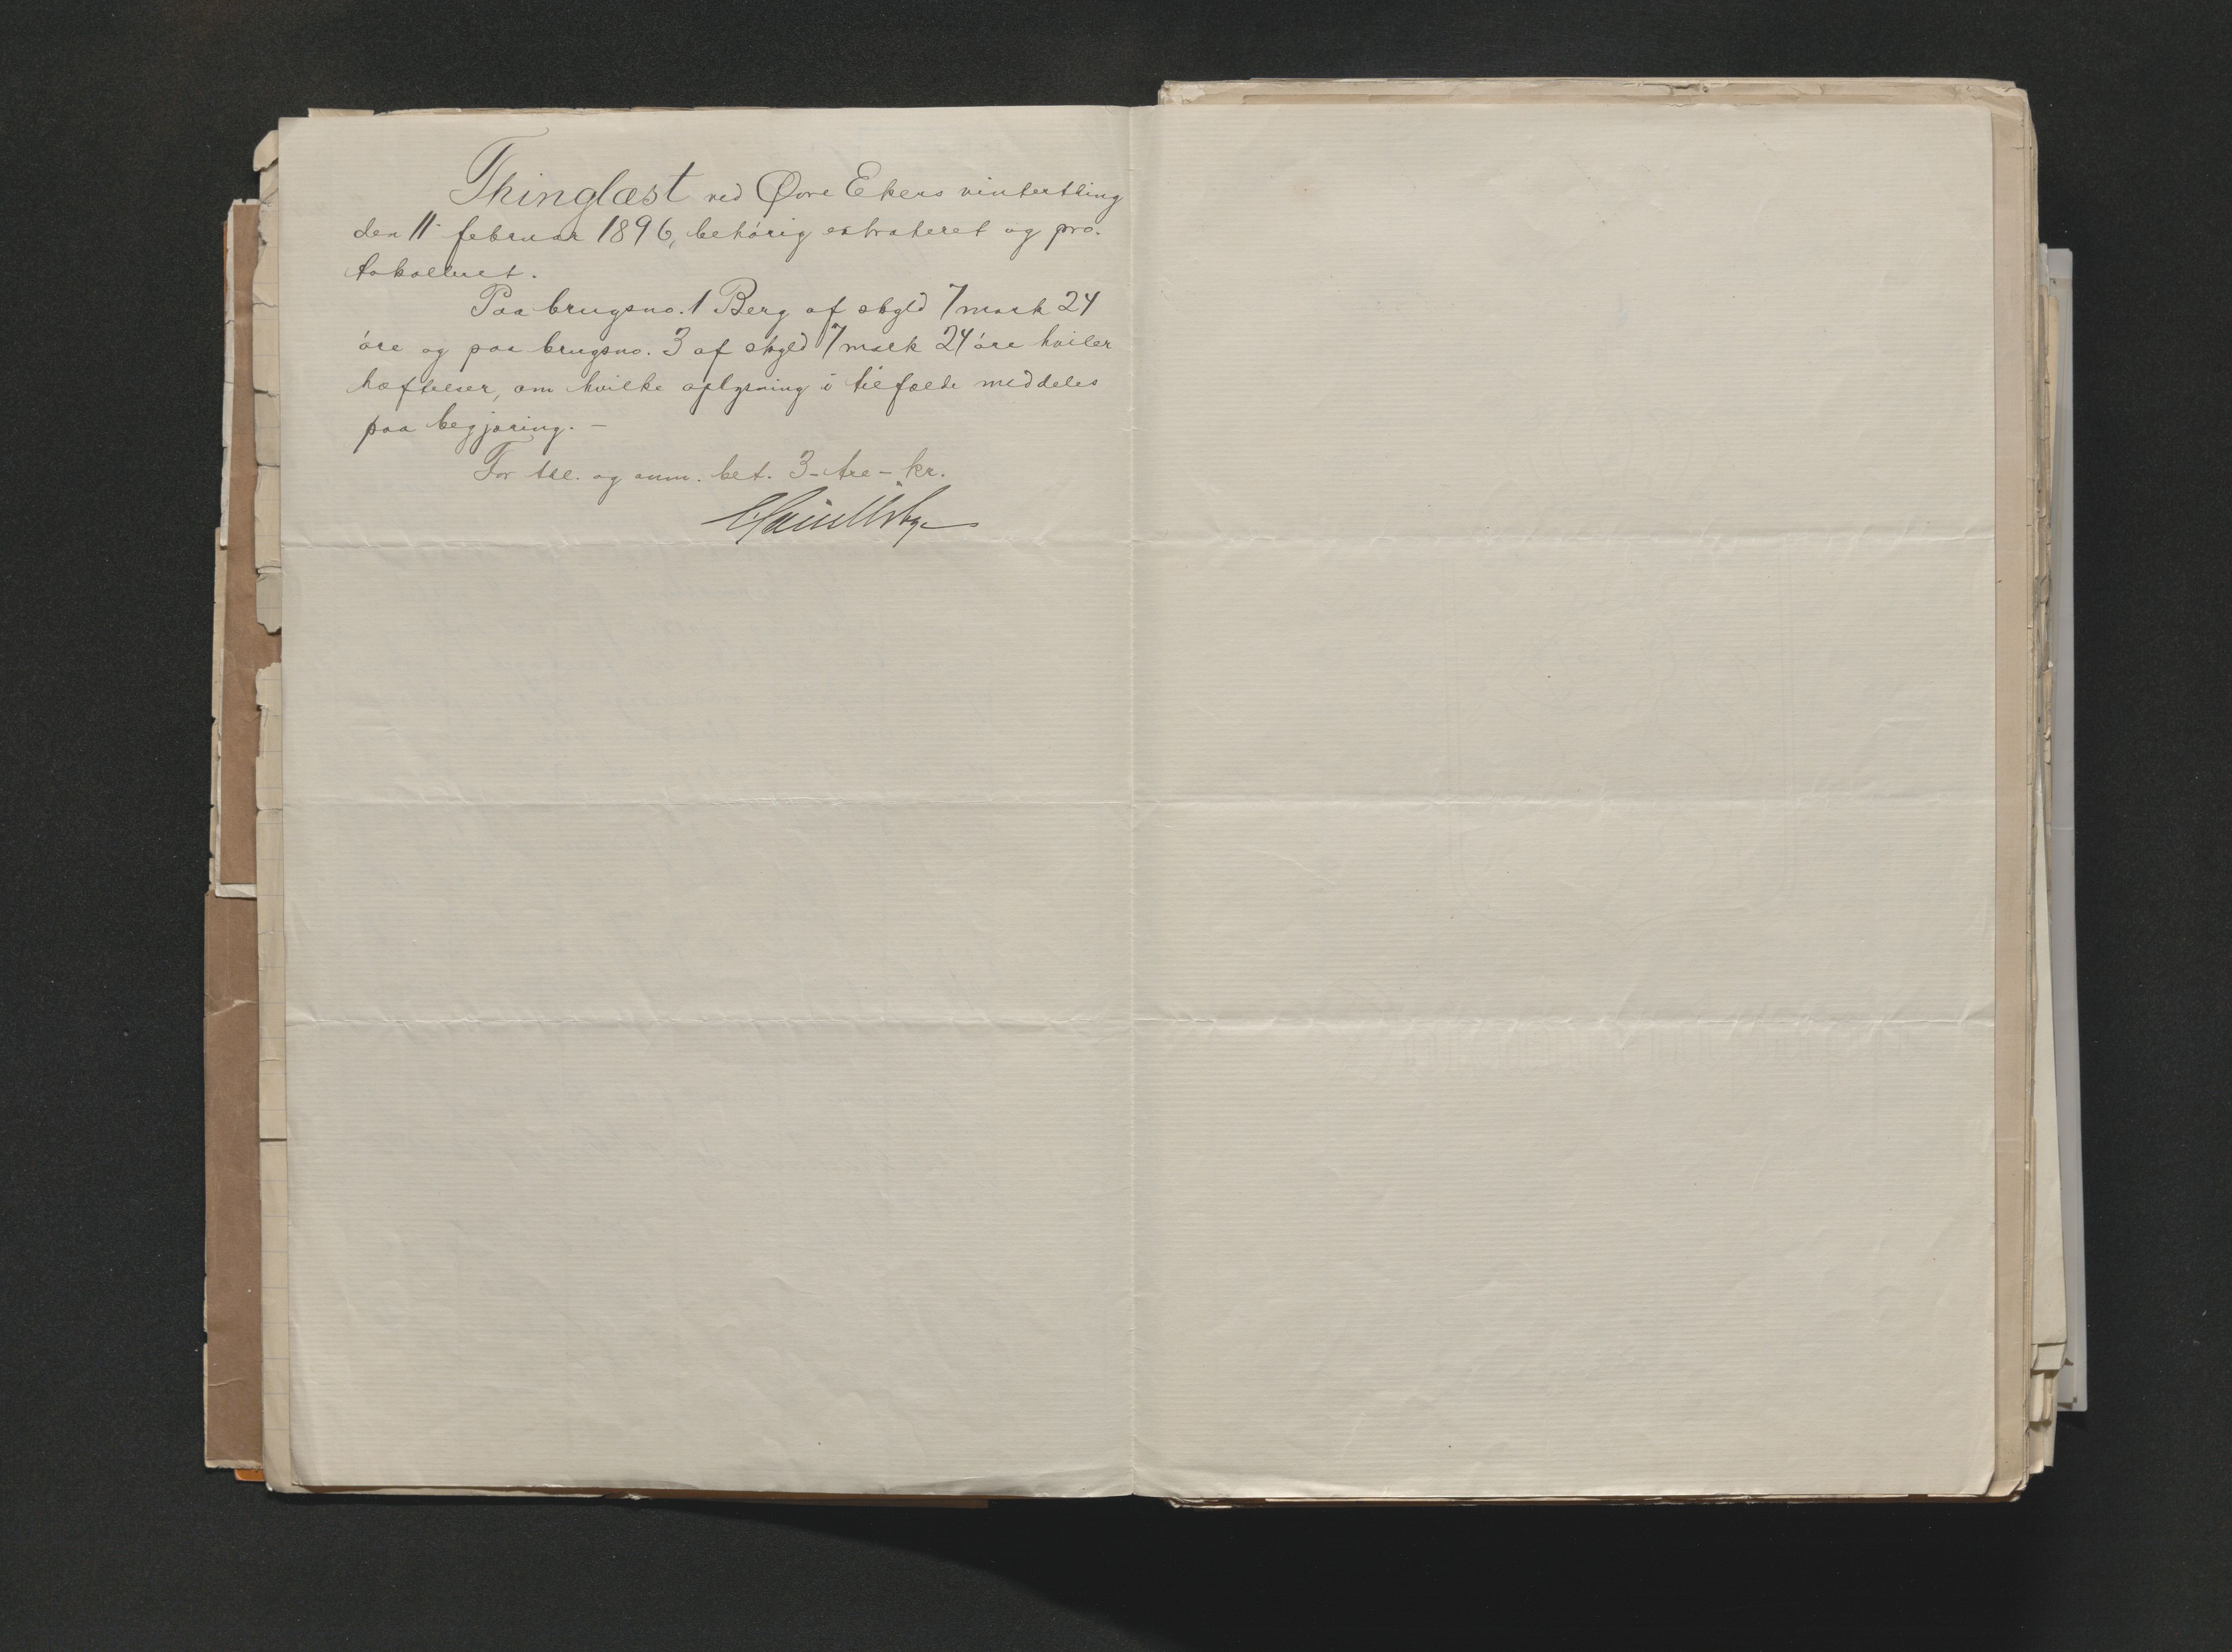 Thinglæst ved Øvre Ekers vinterthing
den 11 februar 1896, behørig extraheret og pro-
tokolleret.
Paa brugsno. 1 Berg af skyld 7 mark 24
øre og paa brugsno. 3 af skyld 7 mark 24 øre hviler
hæftelser, om hvilke oplysning i tilfælde meddeles
paa begjæring. –
For thl. og anm. bet. 3 – tre – kr.